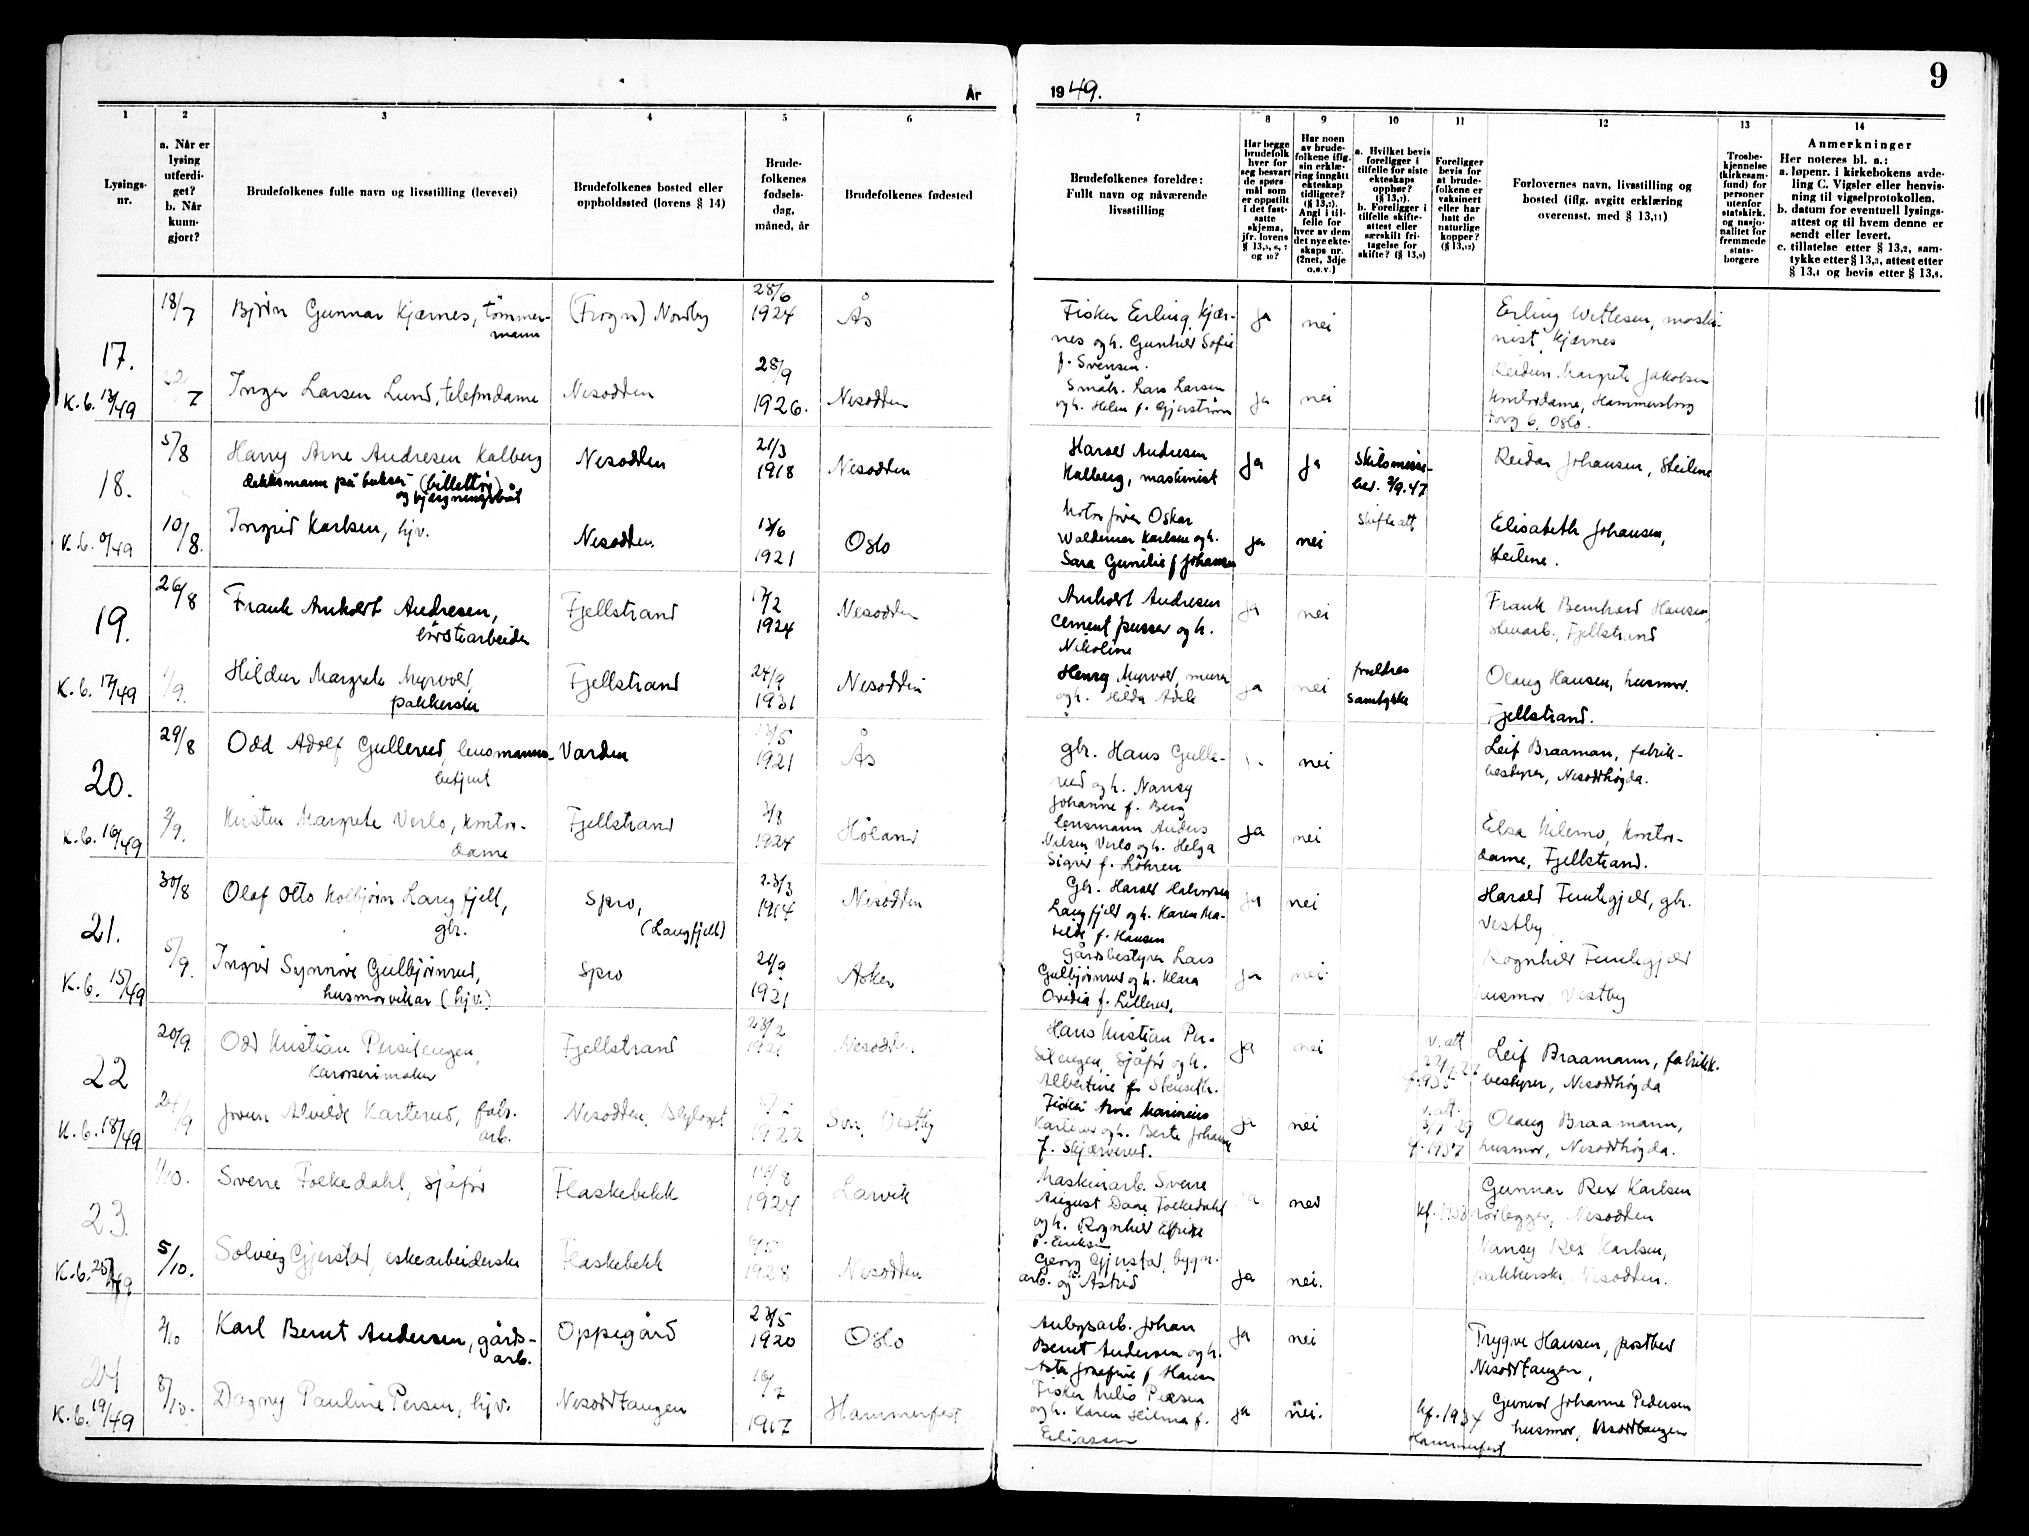 År 1949.
9
1
2
3
4
5
6
7
8
9
10
11
12
13
14
Lysings-
nr.
a. Når er
lysing
utferdi-
get?
b. Når
kunn-
gjort?
Brudefolkenes fulle navn og livsstilling (levevei)
Brudefolkenes bosted eller
oppholdssted (lovens § 14)
Brude-
folkenes
fødsels-
dag,
måned, år
Brudefolkenes fødested
Brudefolkenes foreldre:
Fullt navn og nåværende
livsstilling
Har begge
brudefolk
hver for
seg besvart
de spørs-
mål som
er oppstilt
i det fast-
satte
skjema,
jfr. lovens
Har noen
av brude-
folkene iflg.
sin erklæ-
ring inngått
ekteskap
tidligere?
Angi i til-
felle for
hver av dem
det nye ekte-
skaps nr.
(2net, 3dje
o.s.v.)
a. Hvilket bevis
foreligger i
tilfelle for siste
ekteskaps
opphør?
b. Foreligger i
tilfelle skifte-
attest eller
særskilt fri-
tagelse for
skifte?
Foreligger
bevis for
at brude-
folkene er
vaksinert
eller har
hatt de
naturlige
kopper?
Forlovernes navn, livsstilling og
bosted (iflg. avgitt erklæring
overensst. med § 13,11)
Trosbe-
kjennelse
(kirkesam-
fund) for
personer
utenfor
statskirk.
og nasjo-
nalitet for
fremmede
stats-
borgere
Anmerkninger
Her noteres bl. a.:
a. løpenr. i kirkebokens avde-
ling C. Vigsler eller henvis-
ning til vigselprotokollen.
b. datum for eventuell lysings-
attest og til hvem denne er
sendt eller levert.
c. tillatelse etter § 13,2, sam-
tykke etter § 13,3, attest etter
§ 13,4 og bevis etter § 13,8.
17.
K.b. 13/49
18/7
Bjørn Gunnar Kjærnes, tømmer-
mann
(Frogn) Nordby
28/6
1924
Ås
Fisker Erling Kjær-
nes og h. Gunhild Sofie
f. Svensen.
ja
nei
Erling Wetlesen, maski-
nist, Kjærnes
7
Inger Larsen Lund, telefondame
Nesodden
28/9
1926.
Nesodden
Småbr. Lars Larsen
og h. Helen f. Gjerstrøm
ja
nei
Reidun Margrete Jakobsen
kontordame, Hammersborg
torg 6, Oslo.
18.
5/8
Harry Arne Andresen Kalberg
dekksmann på bukser- (billettør)
og bjergningsbåt
Nesodden
21/3
1918
Nesodden
Harald Andresen
Kalberg, maskinist
ja
ja
Skilsmisse-
bev. 3/9.47
skifteatt.
Reidar Johansen, Steilene
10/8.
Ingrid Karlsen, hjv.
Nesodden
13/6
1921
Oslo
Oskar
Waldemar Karlsen og h.
Sara Gunelie f Johansen
ja
nei
Elisabeth Johansen,
Steilene.
19.
K.b. 17/49
26/8
Frank Anholdt Andresen,
børstearbeider
Fjellstrand
17/2
1924
Nesodden
Anholdt Andresen
Cement pusser og h.
Nikoline
ja
nei
Frank Bernhard Hansen,
Fjellstrand
1/9.
Hildur Margrete Myrvold,
pakkerske
Fjellstrand
24/9
1931
Nesodden
Henry Myrvold, murer
og h. Hilda Adele
ja
nei
foreldres
samtykke
Olaug Hansen, husmor.
Fjellstrand.
20.
K.b. 16/49
29/8
Odd Adolf Gullerud, lensmanns-
betjent
Varden
13/5
1921
Ås
gbr. Hans Gulle-
rud og h. Nansy
Johanne f. Berg
nei
Leif Braaman, fabrik-
bestyrer, Nesoddhøgda.
2/9.
Kirsten Margrete Verlo, kontor-
dame
Fjellstrand
3/8
1924
Høland
lensmann Anders
Nilsen Verlo og h. Helga
Sigrid f. Løkren
ja
nei
Elsa Kilemo, kontor-
dame, Fjellstrand.
21.
K.b. 15/49
30/8
Olaf Otto Kolbjørn Langfjell,
gbr.
Spro,
(Langfjell)
23/3
1914
Nesodden
Gbr. Harald
Langfjeld og h. Karen Ma-
tilde f. Hansen
ja
nei
Harald Tomtegjeld, gbr.
Vestby
5/9.
Inger Synnøve Gulbjørnrud,
husmorvikar (hjv.)
Spro
21/9
1921
Asker
Gårdsbestyrer Lars
Gulbjørnrud og h. Klara
Ovedia f. Lillerud.
ja
nei.
Ragnhild Tomtegjeld
husmor Vestby
22
K.b. 18/49
20/9.
Odd Kristian Persilengen,
karosserimaker
Fjellstrand
23/2
1921
Nesodden
Hans Kristian Per-
silengen, sjåfør og h.
Albertine f. Stenseth.
ja
nei
v. att
Leif Braamann, fabrikk-
bestyrer, Nesoddhøgda
24/9
Jorun Alvilde Karterud, fabr.
arb.
Nesodden, Blylaget
1922
Son, Vestby
Fisker Arne Marinius
Karterud og h. Berte Johanne
f. Skjærverud.
ja
nei
v. att.
3/7-29
kf. 1937
Olaug Braamann,
husmor, Nesoddhøgda.
23.
K.b.
1/10.
Sverre Folkedahl, sjåfør
Flaskebekk
14/8
1924
Larvik
Maskinarb. Sverre
August Daae Folkedahl
og h. Ragnhild Elfride
f. Eriksen
nei
Gunnar Rex Karlsen
rørlegger, Nesodden
5/10.
Solveig Gjerstad, eskearbeiderske
Flaskebekk
9/5
1928
Nesodden
Georg Gjerstad, bygn.
arb. og Astrid
ja
nei.
Nansy Rex Karlsen,
pakkerske, Nesodden.
24
K.b. 19/49
3/10
Karl Bernt Andersen, gårds-
arb.
Oppegård
23/5
1920
Oslo
Anlegsarb. Johan
Bernt Andersen og h.
Asta Josefine f Hansen
ja
nei
Trygve Hansen, postbud
Nesoddtangen,
8/10.
Dagny Pauline Persen, hjv.
Nesoddtangen
16/7
1917
Hammerfest
Fisker Nils Persen
og h. Karen Hilma f.
Eliassen
ja
nei.
kf. 1934
Hammerfest
Gunvor Johanne Pedersen
husmor, Nesoddtangen